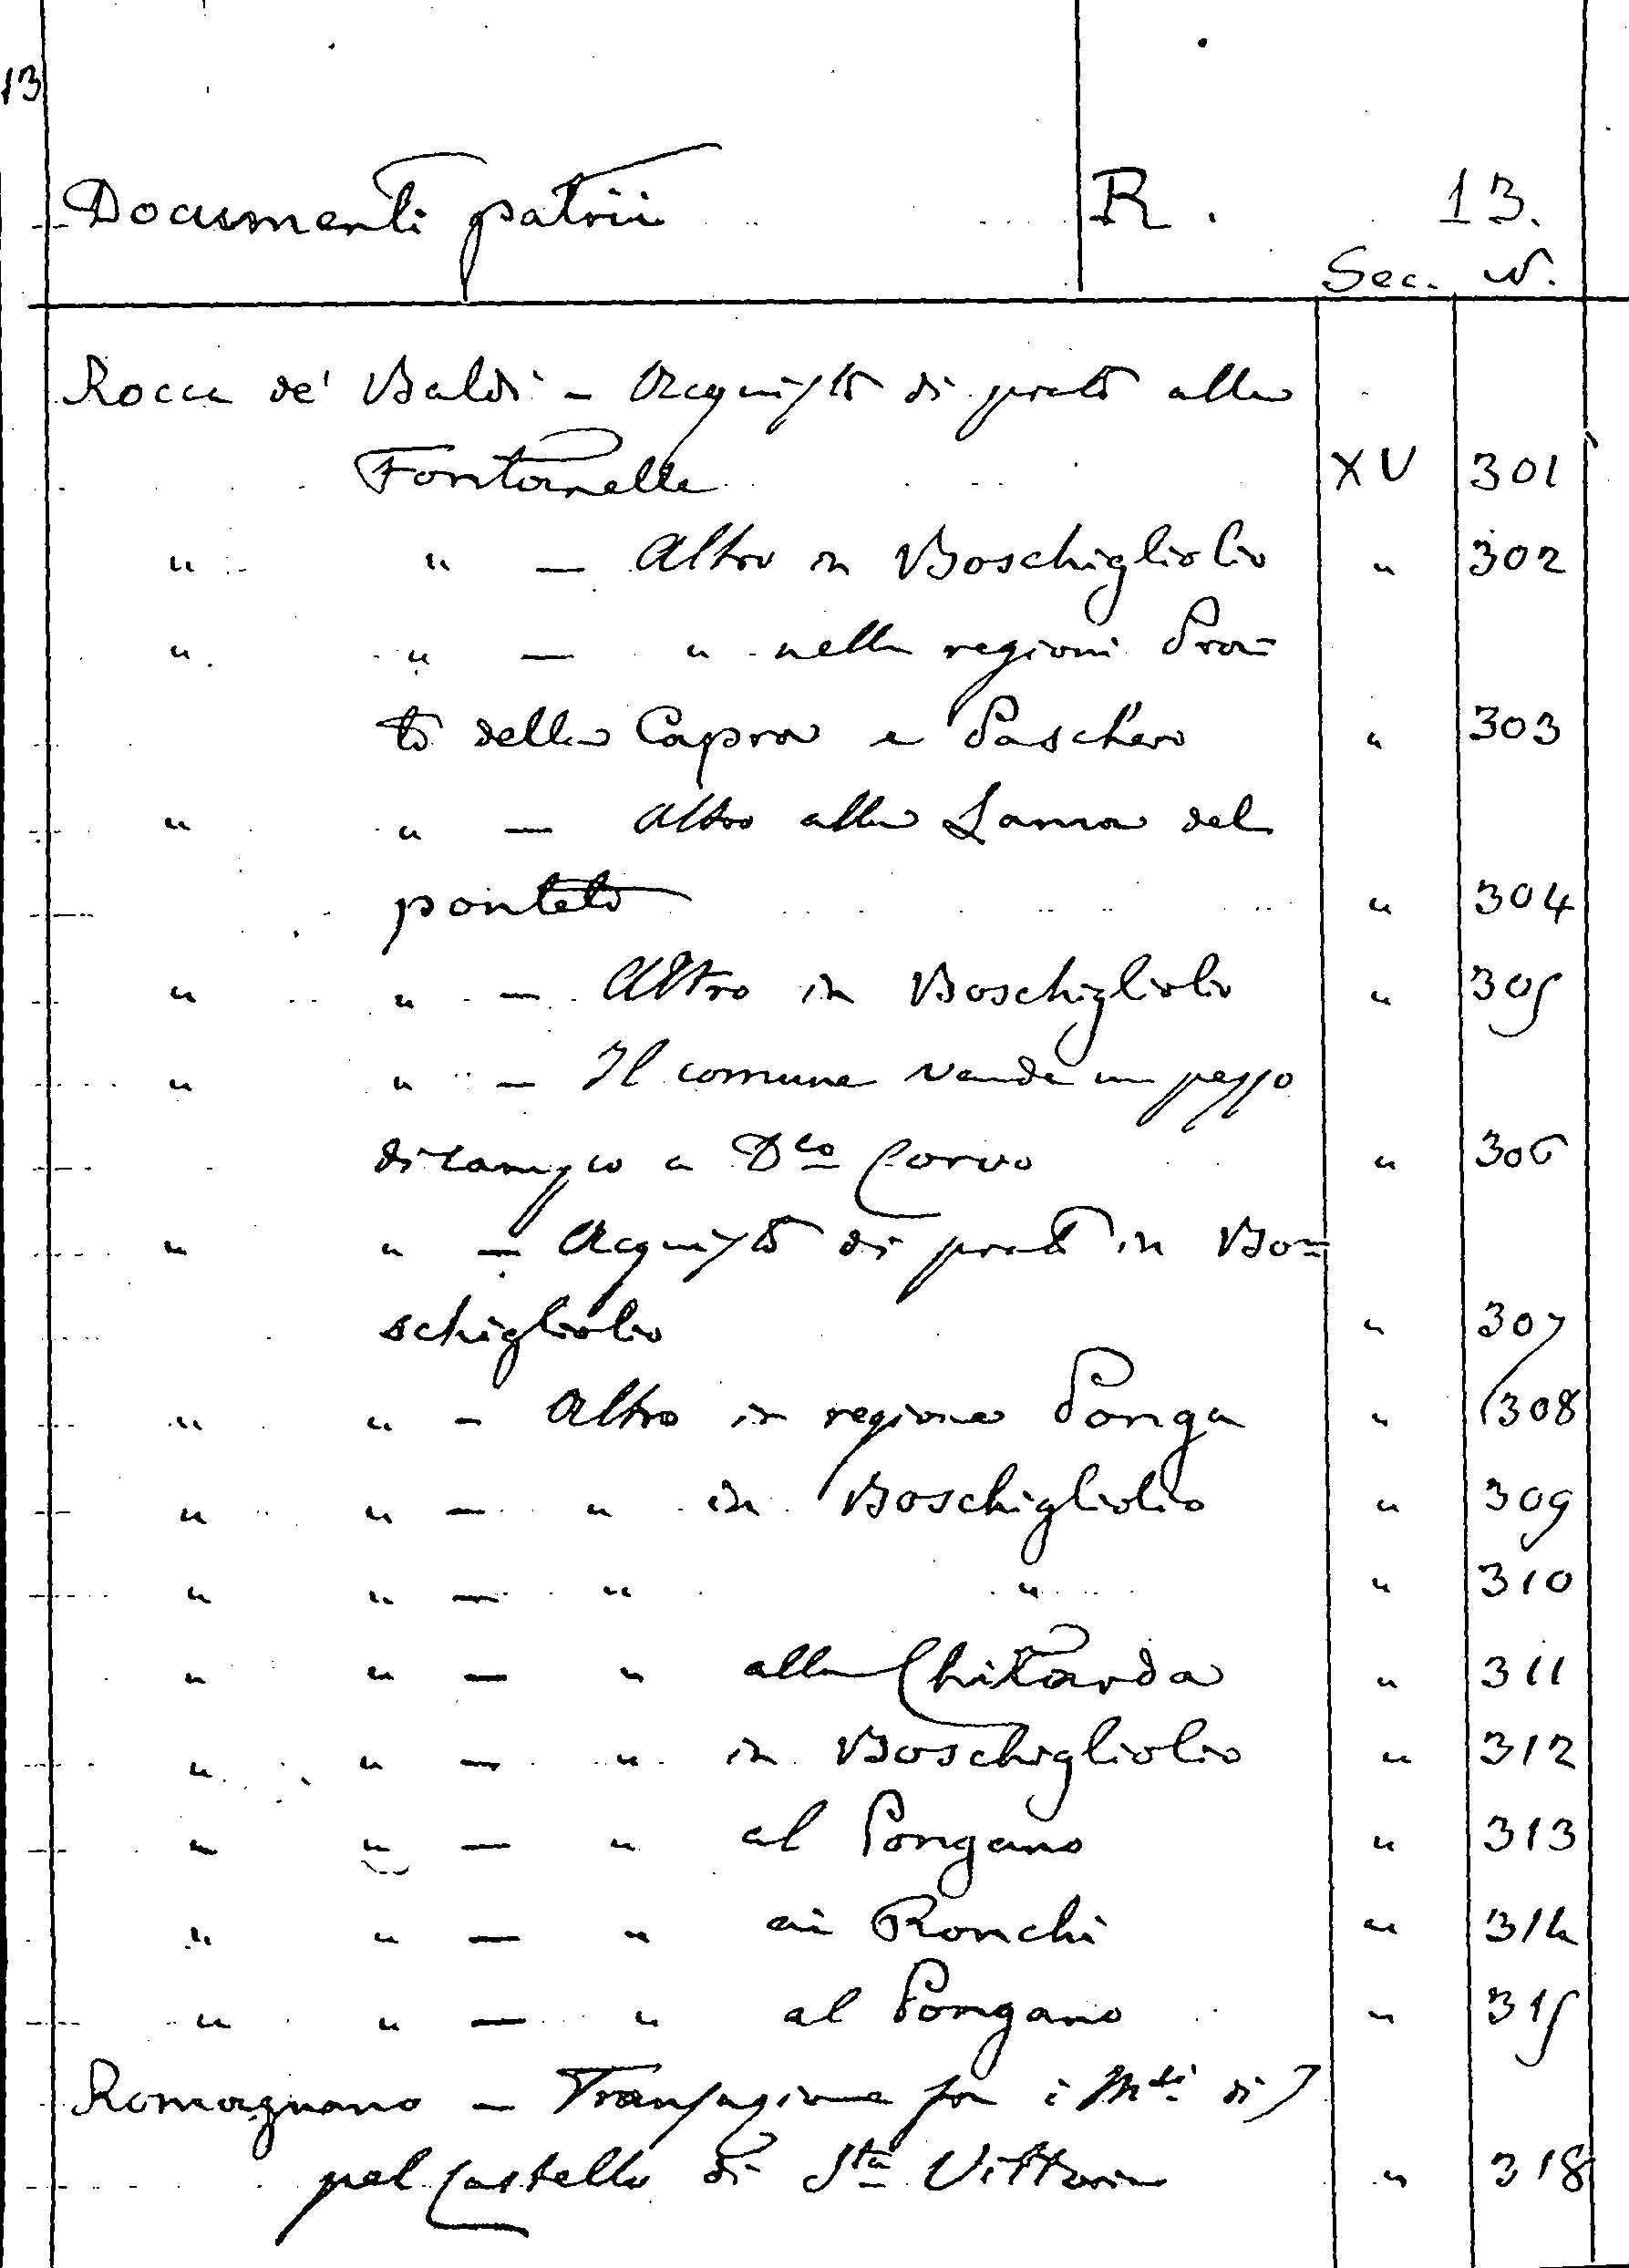 13
Documenti patrii R. 13.
Sec. N.
Rocca de' Baldi - Acquisto di prato alla
Fontanella XV 301
" " - Altro in Boschigliolio " 302
" " - " nelle regioni Pra=
to della Capra e Paschero " 303
" " - Altro alla Lama del
ponteto " 304
" " - Altro in Boschigliolio " 305
" " - Il comune vende un pezzo
di campo a Dco Corvo " 306
" " - Acquisto di prato in Bo=
schigliolio " 307
" " - Altro in regione Ponga " 308
" " - " in Boschigliolio " 309
" " - " " " 310
" " - " alla Chitarda " 311
" " - " in Boschigliolio " 312
" " - " al Pongano " 313
" " - " ai Ronchi " 314
" " - " al Pongano " 315
Romagnano - Transazione fra i Msi di
pel Castello di Sta Vittoria " 318